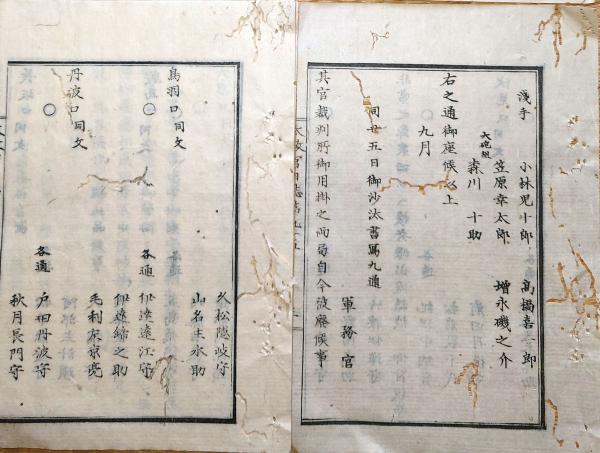 浅手 小林児十郎 高橋喜三郎
笠原幸太郎 増永磯之介
大砲組 森川十助
右之通御座候以上
九月
同廿五日御沙汰書写九通
軍務官
其官裁判所御用掛之両局自今被廃候事
太政官日誌
久松隠岐守
山名主水助
鳥羽口 同文
○ 各通 伊達遠江守
伊達錦之助
毛利左京亮
丹波口 同文
○ 各通 戸田丹波守
秋月長門守